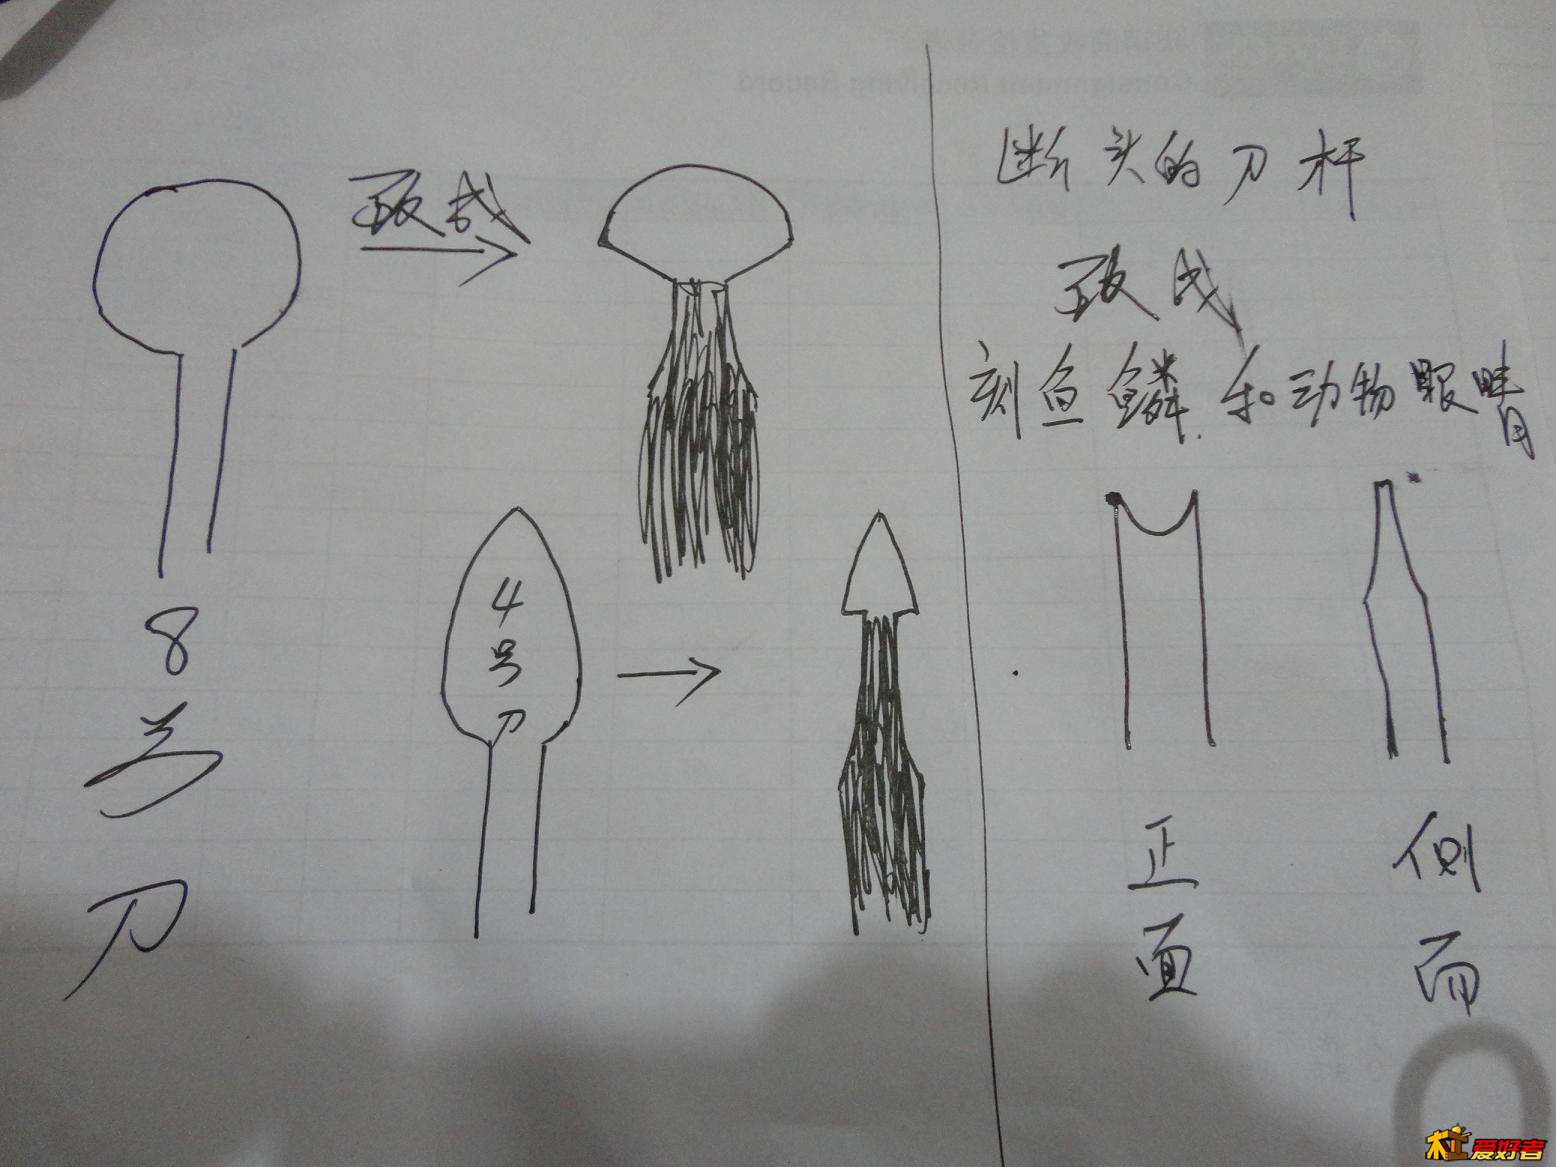 改成
8号刀
4号刀
断头的刀杆
改成
刻鱼鳞和动物眼睛
正面
侧面
木工爱好者